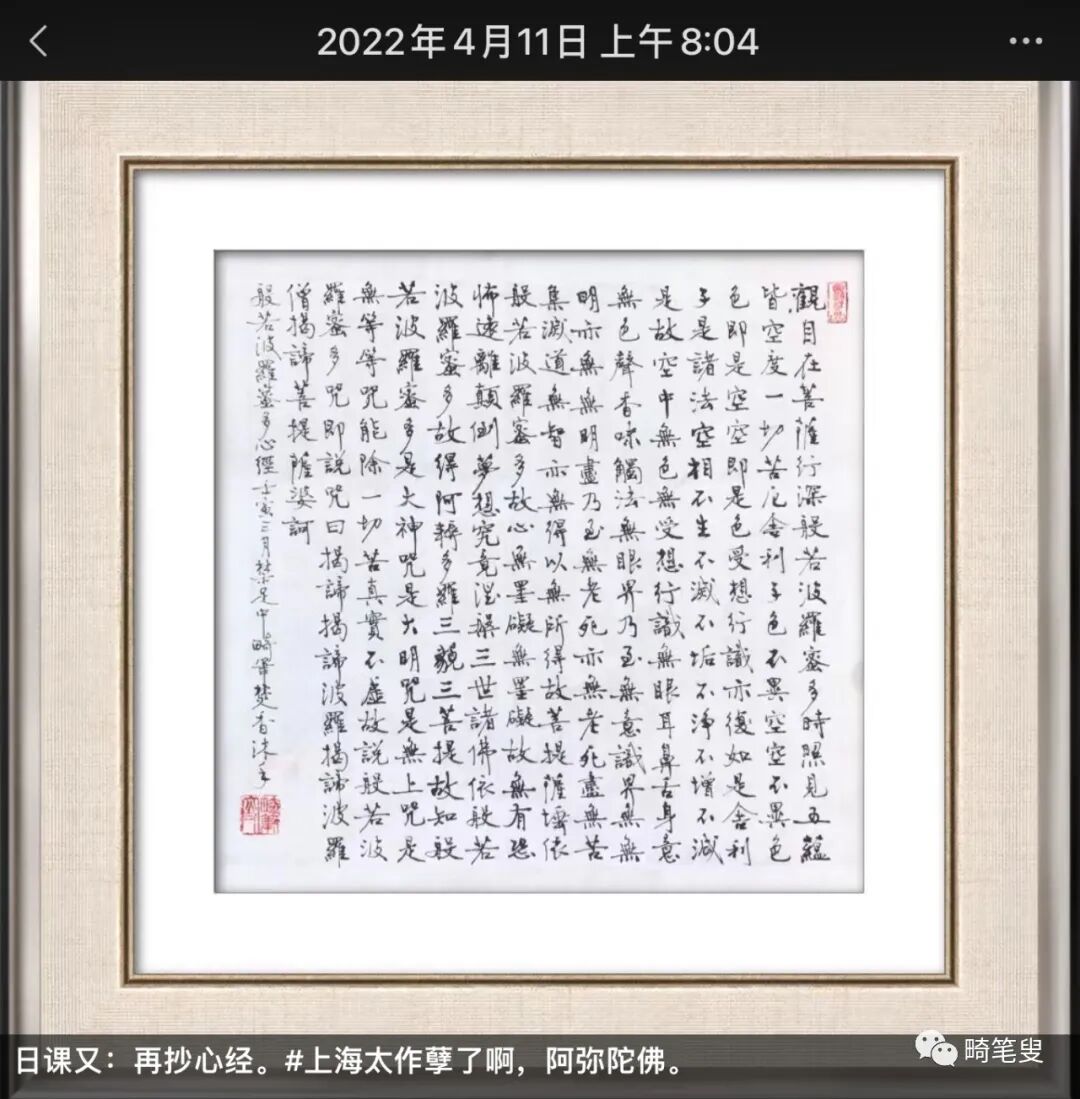 2022年4月11日 上午8:04
觀自在菩薩行深般若波羅蜜多時照見五蘊
皆空度一切苦厄舍利子色不異空空不異色
色即是空空即是色受想行識亦復如是舍利
子是諸法空相不生不滅不垢不淨不增不減
是故空中無色無受想行識無眼耳鼻舌身意
無色聲香味觸法無眼界乃至無意識界無無
明亦無無明盡乃至無老死亦無老死盡無苦
集滅道無智亦無得以無所得故菩提薩埵依
般若波羅蜜多故心無罣礙無罣礙故無有恐
怖遠離顛倒夢想究竟涅槃三世諸佛依般若
波羅蜜多故得阿耨多羅三藐三菩提故知般
若波羅蜜多是大神咒是大明咒是無上咒是
無等等咒能除一切苦真實不虛故說般若波
羅蜜多咒即說咒曰揭諦揭諦波羅揭諦波羅
僧揭諦菩提薩婆訶
般若波羅蜜多心經壬寅三月禁足中畸筆焚香沐手
日课又：再抄心经。#上海太作孽了啊，阿弥陀佛。
畸笔叟